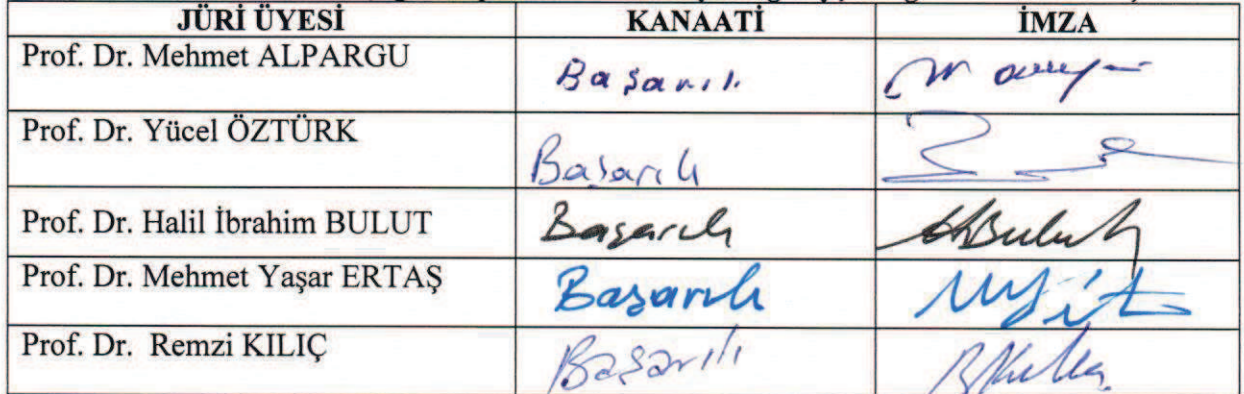 JÜRİ ÜYESİ KANAATİ İMZA
Prof. Dr. Mehmet ALPARGU Başarılı
Prof. Dr. Yücel ÖZTÜRK Başarılı
Prof. Dr. Halil İbrahim BULUT Başarılı
Prof. Dr. Mehmet Yaşar ERTAŞ Başarılı
Prof. Dr. Remzi KILIÇ Başarılı